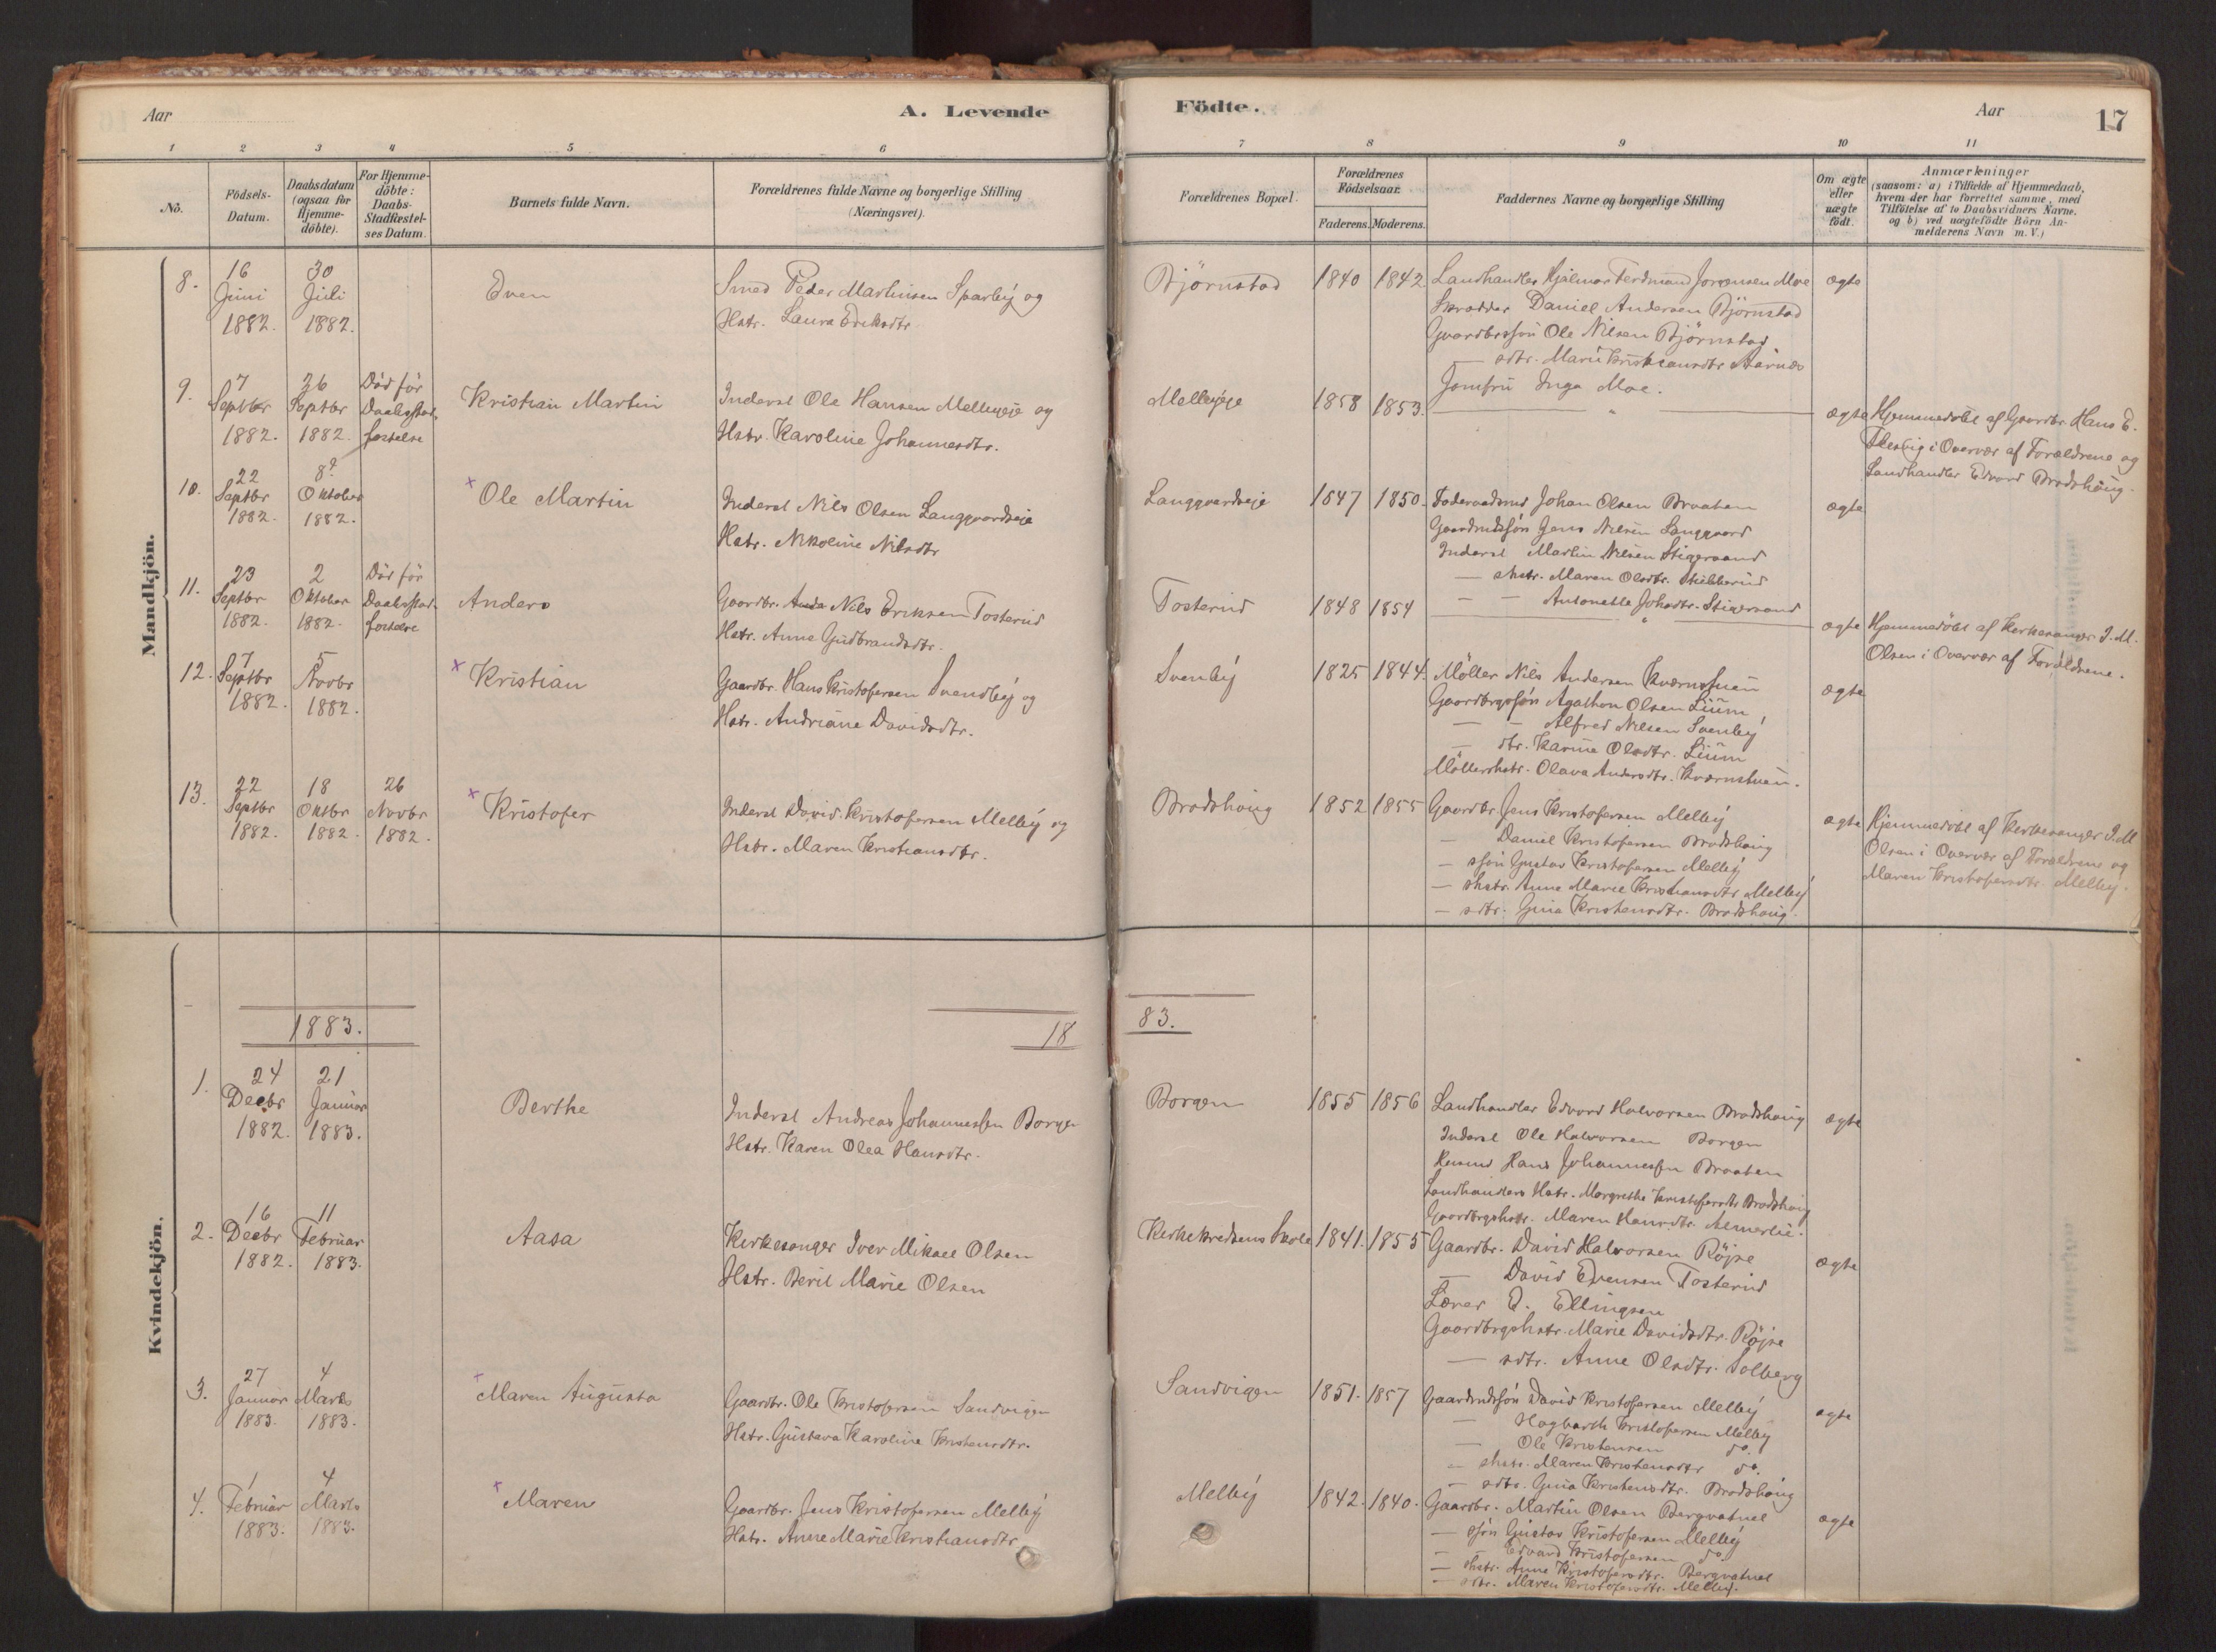 Aar
A. Levende
Födte.
Aar
17
1 2 3 4 5 6 7 8 9 10 11
No.
Födsels-Datum.
Daabsdatum (ogsaa for Hjemme-döbte).
For Hjemme-döbte: Daabs-Stadfæstel-ses Datum.
Barnets fulde Navn.
Forældrenes fulde Navne og borgerlige Stilling (Næringsvei).
Forældrenes Bopæl.
Forældrenes Födselsaar.
Faderens. Moderens.
Faddernes Navne og borgerlige Stilling
Om ægte eller uægte födt.
Anmærkninger
(saasom: a) i Tilfælde af Hjemmedaab,
hvem der har forrettet samme, med
Tilföielse af to Daabsvidners Navne,
og b) ved uægtefödte Börn An-
melderens Navn m. V.)
Mandkjön.
8. 16 Juni 1882. 30 Juli 1882.
Even
Smed Peder Martinsen Sparby og
Hstr. Laura Eriksdtr.
Björnstad 1840 1842
Landhandler Hjalmar Ferdinand Jorgensen Moe
Skrædder Daniel Andersen Björnstad
Gaardbrssön Ole Nilsen Björnstad
— sdtr. Marie Kristiansdtr Aarnæs
Jomfru Inga Moe.
ægte
9. 7 Septbr 1882. 26 Septbr 1882.
Död för Daabsstad-festelse
Kristian Martin
Inderst Ole Hansen Mellbyeje og
Hstr. Karoline Johannesdtr.
Mellbyeje 1858 1853.
— " —
ægte
Hjemmedöbt af Gaardbr. Hans E.
i Overvær af Forældrene og
Landhandler Edvard Bradshaug.
10. 22 Septbr 1882. 8d Oktober 1882.
× Ole Martin
Inderst Nils Olsen Langgaardseje
Hstr. Nikoline Nilsdtr
Langgaardseje 1847 1850.
Föderaadsmd Johan Olsen Braaten
Gaardmdssön Jens Nilsen Langgaard
Inderst Martin Nilsen Stigersand
— shstr. Maren Olsdtr. Stubberud
— — Antonette Johsdtr. Stigersand
ægte
11. 23 Septbr 1882. 2 Oktober 1882.
Död för Daabsstad-festelse
Anders
Gaardbr. Nils Eriksen Tosterud
Hstr. Anne Gudbrandsdtr.
Tosterud 1848 1854
— " —
ægte
Hjemmedöbt af Kirkesanger I. M.
Olsen i Overvær af Forældrene.
12. 7 Septbr 1882. 5 Novbr 1882.
× Kristian
Gaardbr. Hans Kristofersen Svendby og
Hstr. Andriane Davidsdtr.
Svenby 1825 1844.
Möller Nils Andersen Kværnstuen
Gaardbrgssön Agathon Olsen Lium
— — Alfred Nilsen Svenby
— dtr. Karine Olsdtr. Lium
Möllershstr. Olava Andersdtr. Kværnstuen.
ægte
13. 22 Septbr 1882. 18 Oktbr 1882. 26 Novbr 1882.
× Kristofer
Inderst David Kristofersen Melby og
Hstr. Maren Kristiansdtr.
Bradshaug 1852 1855
Gaardbr. Jens Kristofersen Melby
— Daniel Kristofersen Bradshaug
— ssön Gustav Kristofersen Melby
— shstr. Anne Marie Kristiansdtr Melby
— sdtr. Gina Kristensdtr. Bradshaug.
ægte
Hjemmedöbt af Kirkesanger I. M
Olsen i Overvær af Forældrene og
Maren Kristofersdtr. Melby.
Kvindekjön.
1883.
18 83.
1. 24 Decbr 1882. 21 Januar 1883.
Berthe
Inderst Andreas Johannessen Borgen
Hstr. Karen Olea Hansdtr.
Borgen 1855 1856
Landhandler Edvard Halvorsen Bradshaug
Inderst Ole Halvorsen Borgen
Husmd Hans Johannessen Braaten
Landhandlers Hstr. Margrethe Kristofersdtr Bradshaug
Gaardbrgshstr. Maren Hansdtr. Almerlie.
ægte
2. 16 Decbr 1882. 11 Februar 1883.
Aasa
Kirkesanger Iver Mikael Olsen
Hstr. Beril Marie Olsen
Kirkekredsens Skole 1841. 1855
Gaardbr. David Halvorsen Röjse
— David Evensen Tosterud
Lærer E. Ellingsen
Gaardbrgshstr. Marie Davidsdtr. Röjse
— sdtr. Anne Olsdtr. Solberg
ægte
3. 27 Januar 1883. 4 Marts 1883.
× Maren Augusta
Gaardbr. Ole Kristofersen Sandvigen
Hstr. Gustava Karoline Kristensdtr.
Sandvigen 1851. 1857
Gaardmdssön David Kristofersen Melby
— Hagbarth Kristofersen Melby
— Ole Kristensen do.
— shstr. Maren Kristensdtr do.
— sdtr. Gina Kristensdtr. Bradshaug
ægte
4. 1 Februar 1883. 4 Marts 1883.
× Maren
Gaardbr. Jens Kristofersen Melby
Hstr. Anne Marie Kristiansdtr
Melby 1842. 1840.
Gaardbr. Martin Olsen Bergvatnet
— ssön Gustav Kristofersen Melby
— — Edvard Kristofersen do
— shstr. Anne Kristofersdtr. Bergvatnet
— sdtr. Maren Kristofersdtr. Melby.
ægte